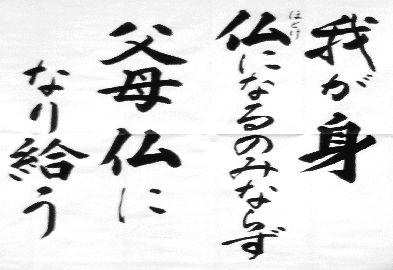 我が身
仏になるのみならず
ほとけ
父母仏に
なり給う